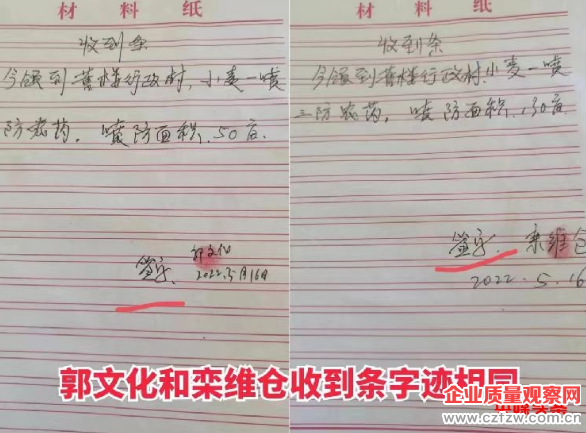 材料纸
收到条
今领到黄楼行政村,小麦一喷
防农药,喷防面积.50亩.
签字. 郭文化
2022.5月16日
材料纸
收到条
今领到黄楼行政村.小麦一喷
三防农药,喷防面积.130亩.
签字. 栾维仓
2022.5.16
郭文化和栾维仓收到条字迹相同
企业质量观察网
www.czfzw.com.cn